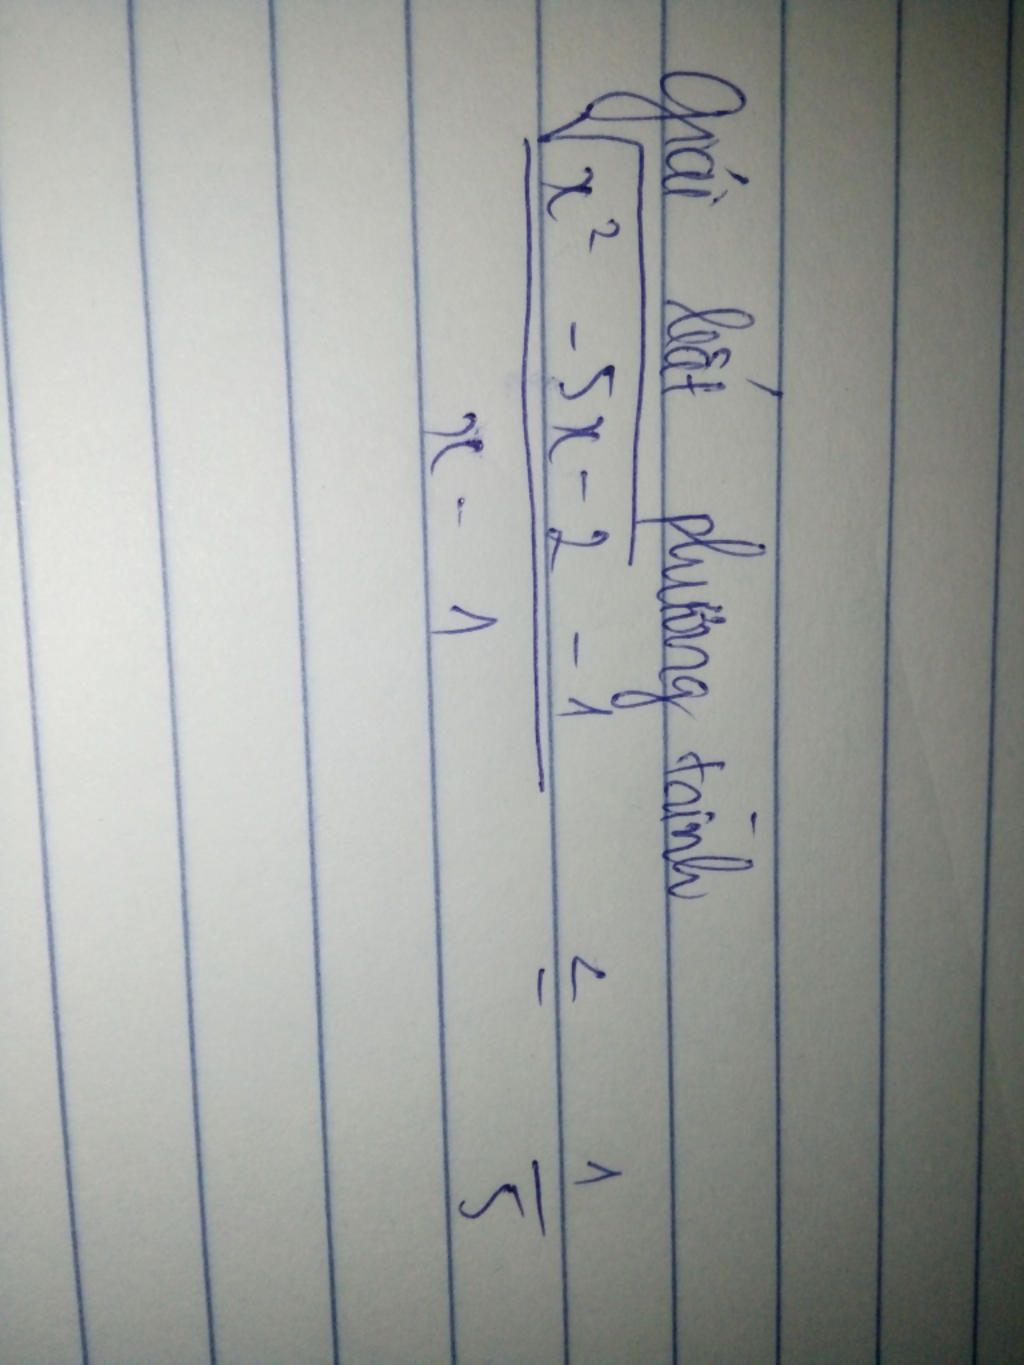 Giải bất phương trình
√x² - 5x - 2 - 1 ≤ 1
x - 1 5